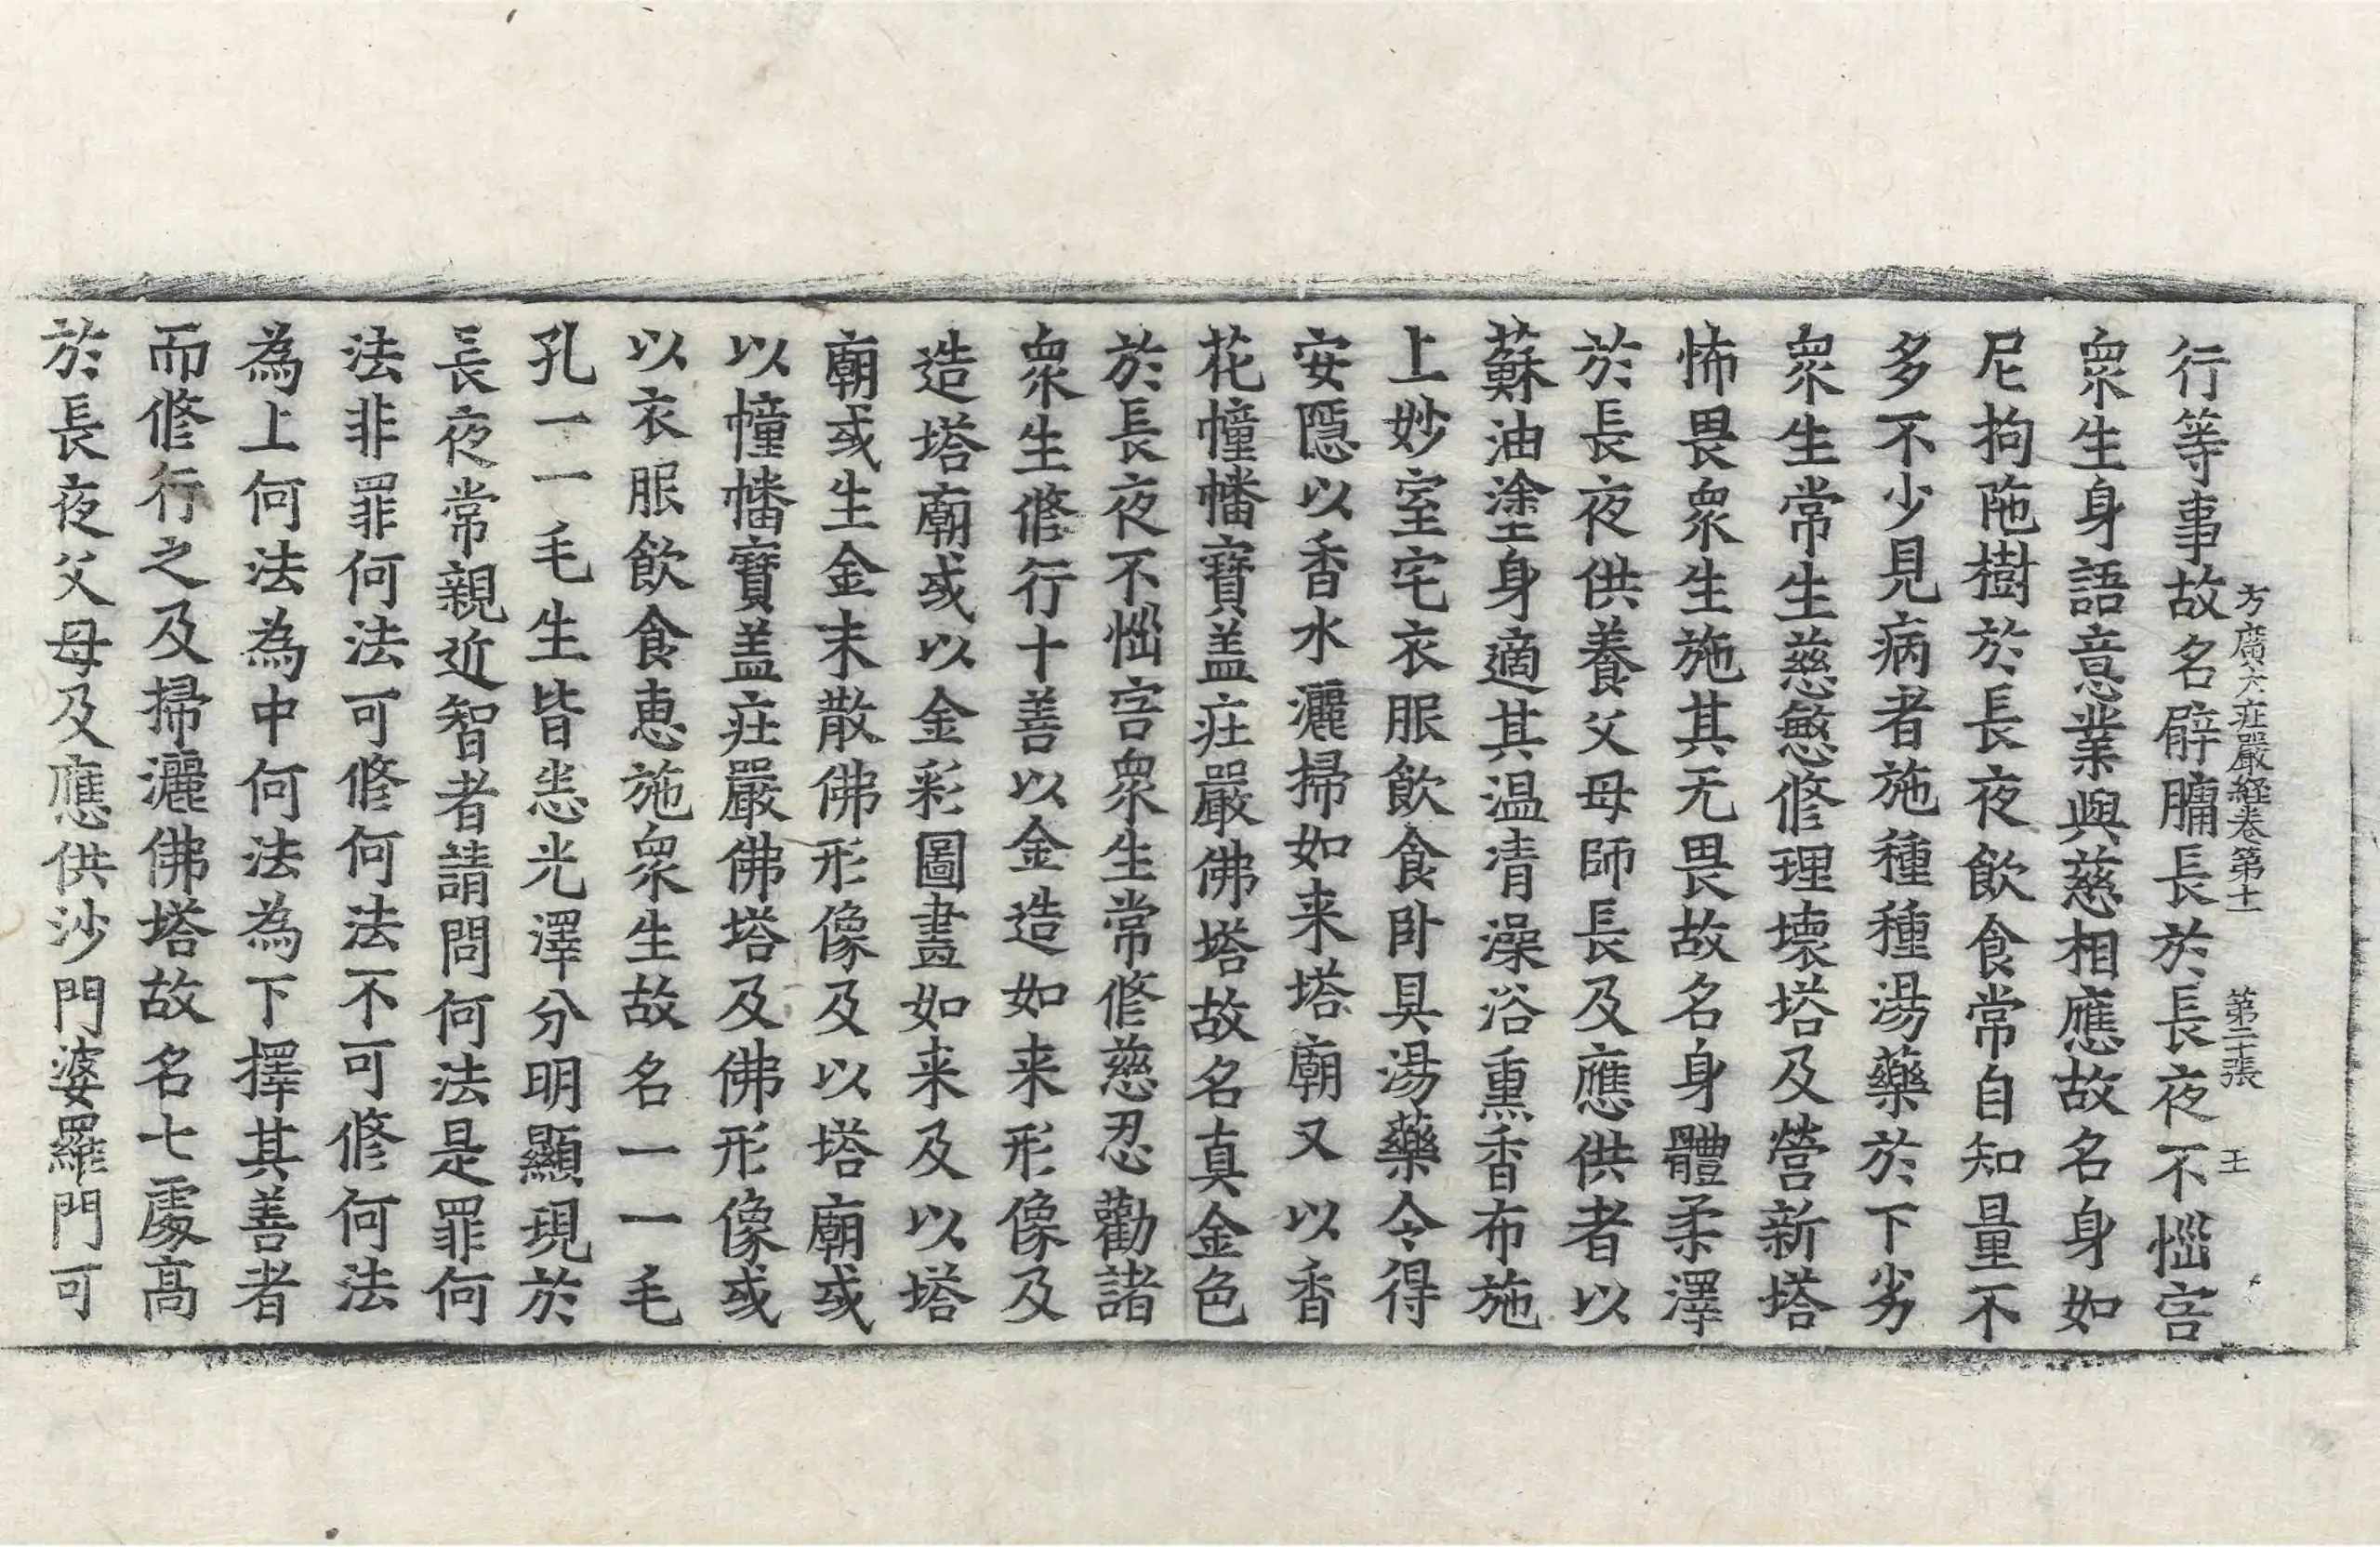 方廣大莊嚴経卷第十一　第二十張　王
行等事故名臂𦟛長於長夜不惱害
衆生身語意業與慈相應故名身如
尼拘陁樹於長夜飲食常自知量不
多不少見病者施種種湯藥於下劣
衆生常生慈愍修理壞塔及營新塔
怖畏衆生施其无畏故名身體柔澤
於長夜供養父母師長及應供者以
蘇油塗身適其温清澡浴熏香布施
上妙室宅衣服飲食卧具湯藥令得
安隱以香水灑掃如来塔廟又以香
花幢幡寶盖莊嚴佛塔故名真金色
於長夜不惱害衆生常修慈忍勸諸
衆生修行十善以金造如来形像及
造塔廟或以金彩圖畫如来及以塔
廟或生金末散佛形像及以塔廟或
以幢幡寶盖莊嚴佛塔及佛形像或
以衣服飲食惠施衆生故名一一毛
孔一一毛生皆悉光澤分明顯現於
長夜常親近智者請問何法是罪何
法非罪何法可修何法不可修何法
為上何法為中何法為下擇其善者
而修行之及掃灑佛塔故名七處高
於長夜父母及應供沙門婆羅門可